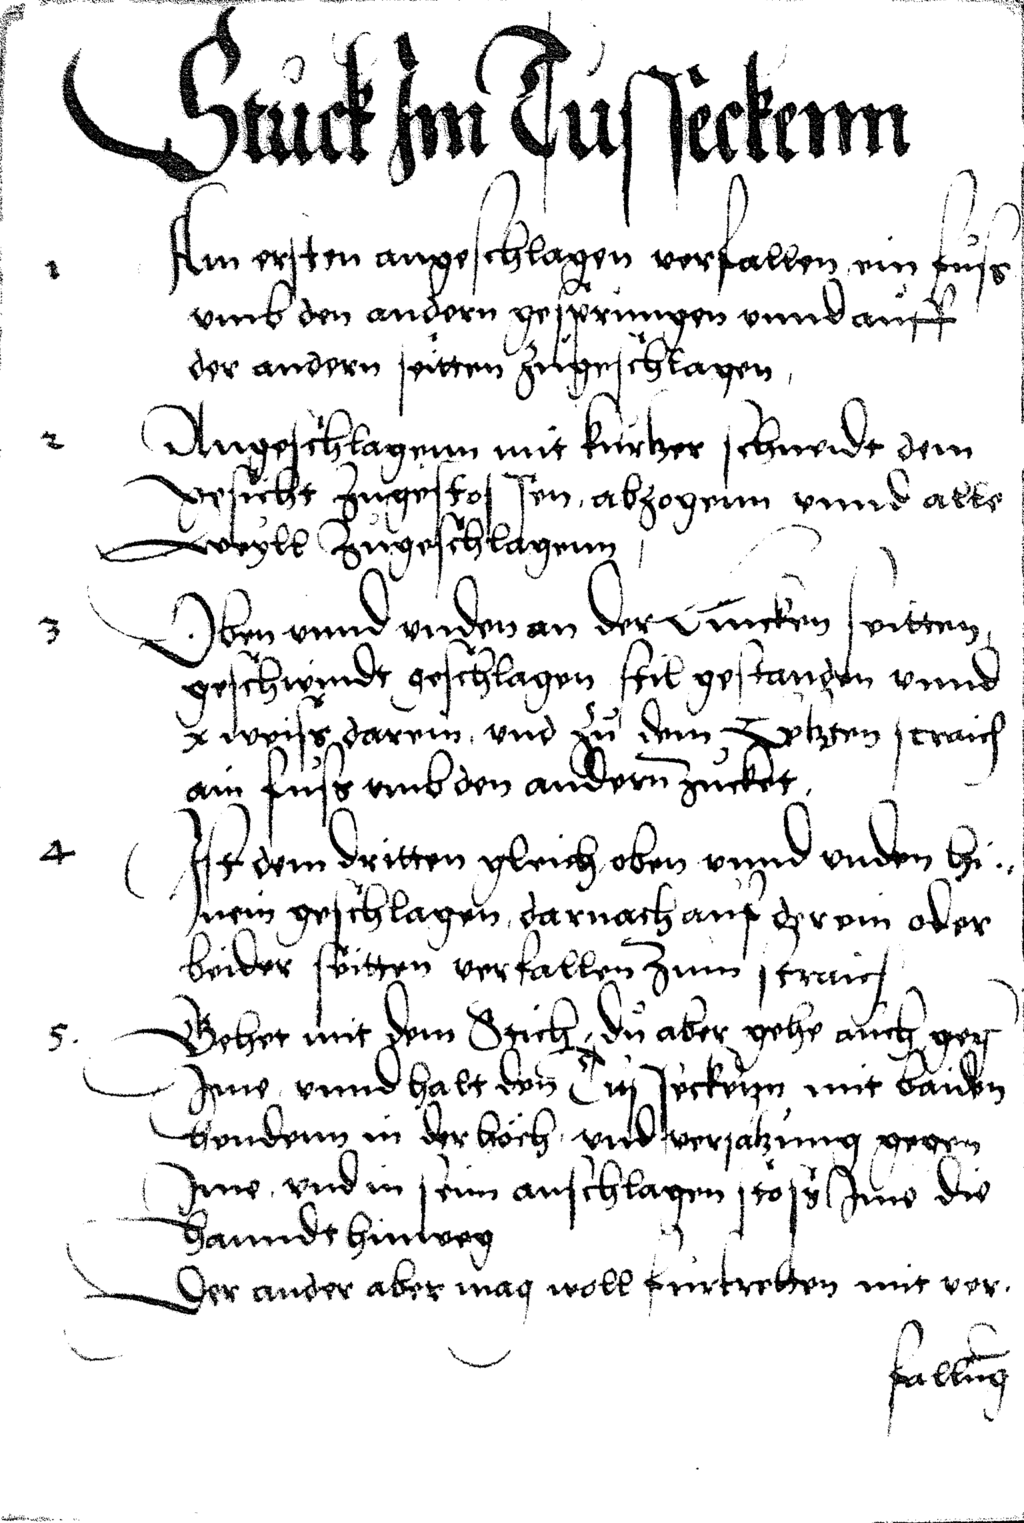 Stuck Im Tusseckenn
1 Am ersten angeschlagen verfallen ein fuss
vmb den andern gesprungen vnnd auff
der andern seitten zugeschlagen,
2 Angeschlagenn mit kurtzer schneidt dem
gesicht zugestossen, abzogenn vnnd alle
weyll zugeschlagenn,
3 Oben vnnd vnden an der Lincken seitten,
geschwindt geschlagen stil gestanden vnnd
x weiss darein, vnd zu dem Letzten straich
ain fuss vmb den andern zucket,
4 Ist dem dritten gleich oben vnnd vnden hi„
nein geschlagen, darnach auf der ein oder
beider seitten verfallen zum straich
5. Gehet mit dem Stich, du aber gehe auch geg
Ime, vnnd halt den Tusseckenn mit baiden
hendenn in der höch, vnd versatzung gegen
Ime, vnd in seim anschlagen stoss Ime die
hanndt hinweg
Der ander aber mag woll furtretten mit ver„
fallūg